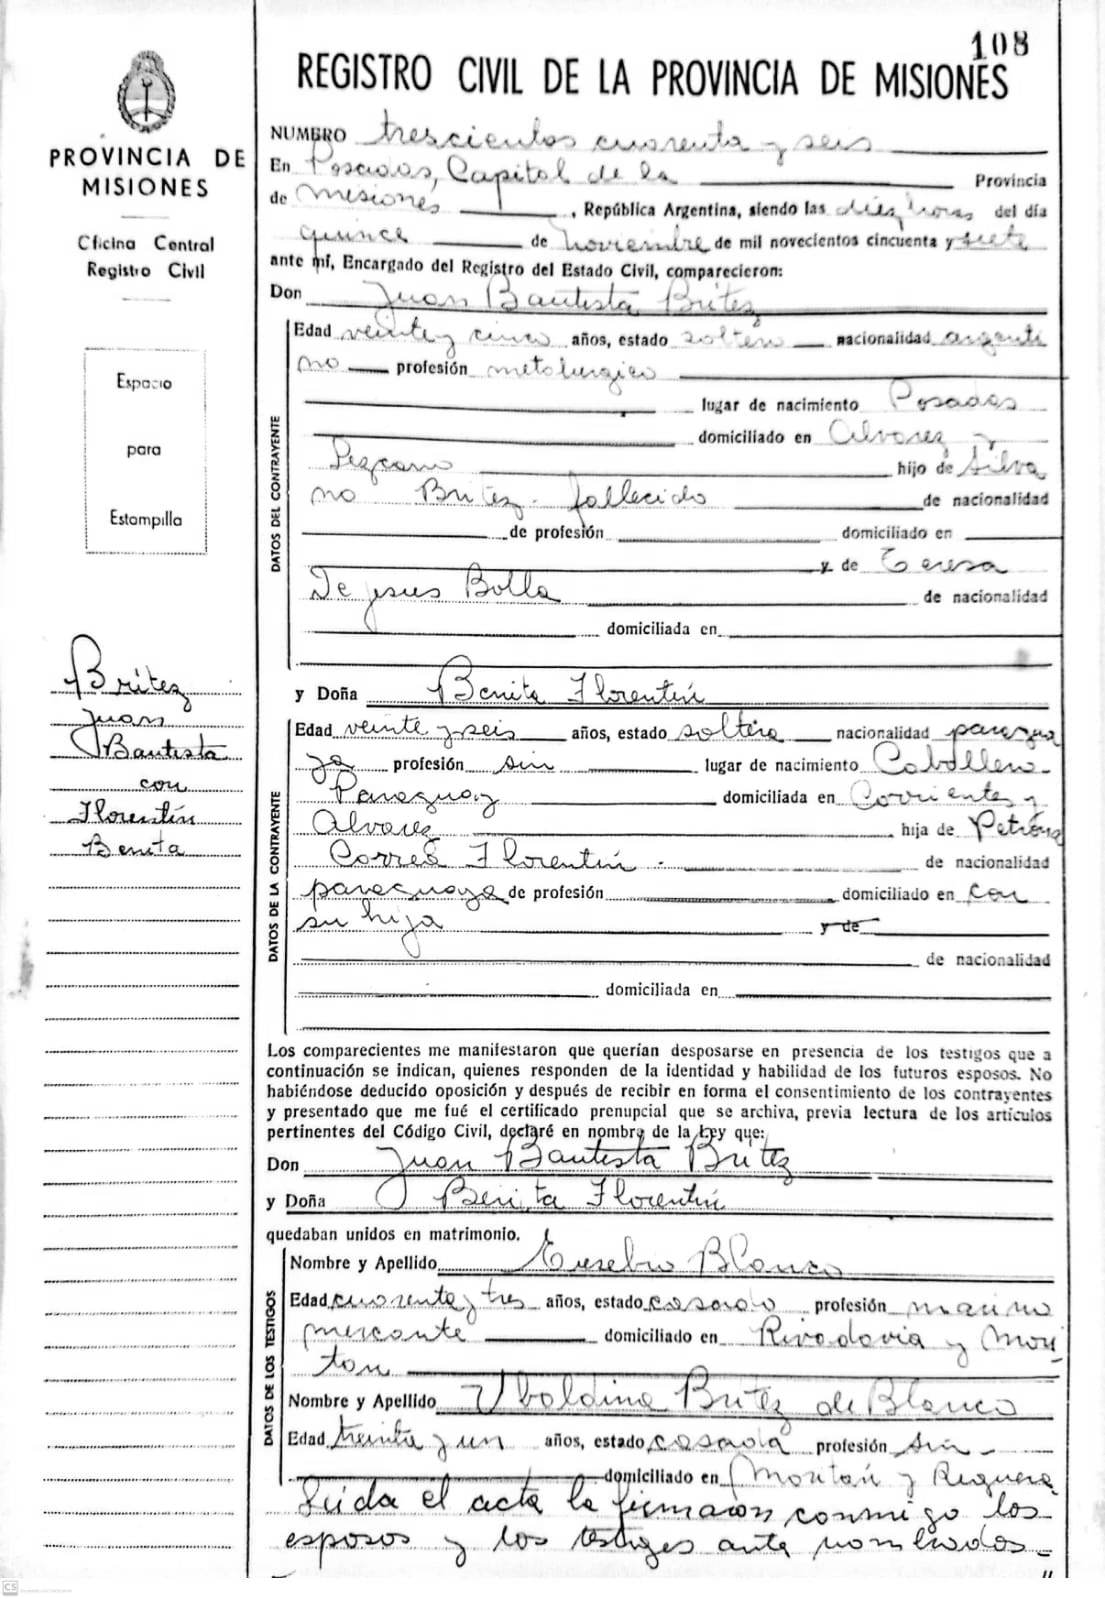 108
REGISTRO CIVIL DE LA PROVINCIA DE MISIONES
PROVINCIA DE
MISIONES
Oficina Central
Registro Civil
Espacio
para
Estampilla
Britez
Juan
Bautista
con
Florentín
Benita
NUMERO trescientos cuarenta y seis
En Posadas, Capital de la Provincia
de Misiones, República Argentina, siendo las diez horas del día
quince de noviembre de mil novecientos cincuenta y siete
ante mí, Encargado del Registro del Estado Civil, comparecieron:
Don Juan Bautista Britez
DATOS DEL CONTRAYENTE
Edad veinte y cinco años, estado soltero nacionalidad argenti
no profesión metalurgico
lugar de nacimiento Posadas
domiciliado en Alvarez y
Lezcano hijo de Silva
no Britez - fallecido de nacionalidad
de profesión domiciliado en
y de Teresa
De Jesus Bolla de nacionalidad
domiciliada en
y Doña Benita Florentín
DATOS DE LA CONTRAYENTE
Edad veinte y seis años, estado soltera nacionalidad paragua
ya profesión sin lugar de nacimiento Caballero
Paraguay domiciliada en Corrientes y
Alvarez hija de Petrona
Correa Florentín - de nacionalidad
paraguaya de profesión domiciliado en con
su hija y de
de nacionalidad
domiciliada en
Los comparecientes me manifestaron que querían desposarse en presencia de los testigos que a
continuación se indican, quienes responden de la identidad y habilidad de los futuros esposos. No
habiéndose deducido oposición y después de recibir en forma el consentimiento de los contrayentes
y presentado que me fué el certificado prenupcial que se archiva, previa lectura de los artículos
pertinentes del Código Civil, declaré en nombre de la Ley que:
Don Juan Bautista Britez
y Doña Benita Florentín
quedaban unidos en matrimonio.
DATOS DE LOS TESTIGOS
Nombre y Apellido Eusebio Blanco
Edad cuarenta y tres años, estado casado profesión marino
mercante domiciliado en Rivadavia y Mon
tan
Nombre y Apellido Ubaldina Britez de Blanco
Edad treinta y un años, estado casada profesión sin -
domiciliado en Montan y Reguera
Leida el acta la firmaron conmigo los
esposos y los testigos ante nombrados -
CS